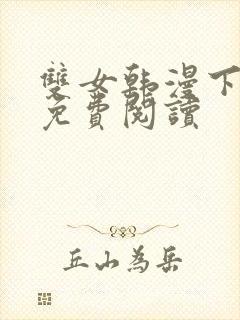 雙女韓漫下
免費閱讀
丘山為岳